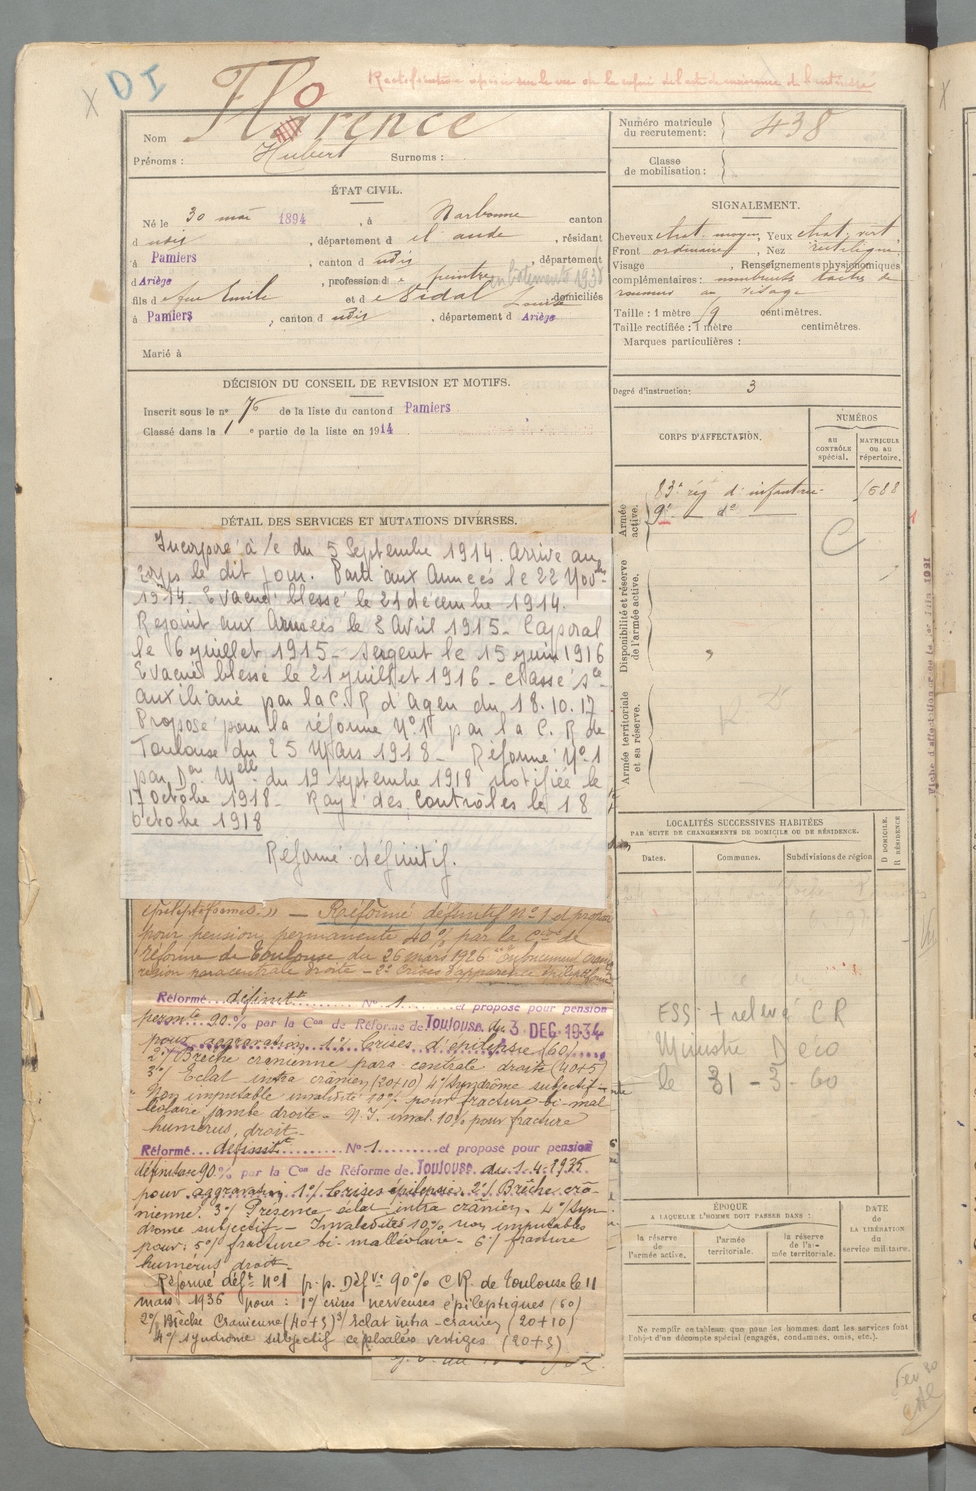 DI
Rectification opérée sur le vu de la copie de l'acte de naissance de l'intéressé
Nom Florence
Prénoms : Hubert Surnoms :
Numéro matricule du recrutement : 438
Classe de mobilisation :
ÉTAT CIVIL.
Né le 30 mai 1894, à Narbonne canton
d udis, département d e l'aude, résidant
à Pamiers, canton d udis, département
d Ariège, profession d e peintre en bâtiments 1938
fils d e feu Emile et d e Vidal Louise domiciliés
à Pamiers, canton d udis, département d Ariège
Marié à
SIGNALEMENT.
Cheveux chat. moyen, Yeux chat. vert
Front ordinaire, Nez rectiligne
Visage , Renseignements physionomiques
complémentaires : nombreuses taches de
rousseur au visage
Taille : 1 mètre 59 centimètres.
Taille rectifiée : 1 mètre centimètres.
Marques particulières :
Degré d'instruction : 3
DÉCISION DU CONSEIL DE REVISION ET MOTIFS.
Inscrit sous le n° 76 de la liste du canton d Pamiers
Classé dans la 1 e partie de la liste en 1914
CORPS D'AFFECTATION.
NUMÉROS
AU CONTRÔLE spécial.
MATRICULE OU AU répertoire.
Armée active.
83e rég d'infanterie 1588
9e — do —
C
Disponibilité et réserve de l'armée active.
Armée territoriale et sa réserve.
DÉTAIL DES SERVICES ET MUTATIONS DIVERSES.
Incorporé à /c du 5 Septembre 1914. Arrivé au
corps le dit jour. Parti aux Armées le 22 Novbre
1914. Evacué blessé le 21 décembre 1914.
Rejoint aux Armées le 3 Avril 1915 - Caporal
le 6 juillet 1915 - sergent le 15 juin 1916
Evacué blessé le 21 juillet 1916 - classé sce
auxiliaire par la C.R d'Agen du 18.10.17
Proposé pour la réforme N° 1 par la C. R de
Toulouse du 25 Mars 1918 - Réformé N° 1
par Don Melle du 19 septembre 1918 notifiée le
17 octobre 1918 - Rayé des Contrôles le 18
octobre 1918
Réformé définitif.
épileptiformes.)) — Réformé définitif N° 1 et proposé
pour pension permanente 40% par la Cion de
réforme de Toulouse du 26 mars 1926 1° Enfoncement crânien
région paracentrale droite - 2° Crises d'apparence épileptiforme
Réformé définitt N° 1 et proposé pour pension
permte 90% par la Con de Réforme de Toulouse du 3 DEC 1934
pour aggravation 1°/ Crises d'épilepsie (60)
2°/ Brèche cranienne para centrale droite (40+5)
3°/ Eclat intra crânien (20+10) 4°/ Syndrôme subjectif -
Non imputable invalidité 10% pour fracture bi-mal-
léolaire jambe droite - N.I. inval. 10% pour fracture
humérus droit -
Réformé définitt N° 1 et proposé pour pension
définitive 90% par la Con de Réforme de Toulouse du 1.4.1935
pour aggravation 1°/ Crises épilepsie. 2°/ Brèche crâ-
nienne. 3°/ Présence éclat intra crânien. 4°/ Syn-
drome subjectif - Invalidités 10% non imputables
pour : 5°/ fracture bi-malléolaire - 6°/ fracture
humérus droit -
Réformé déft N°1 p.p. Défve 90% C.R. de Toulouse le 11
mars 1936 pour : 1°/ crises nerveuses épileptiques (60)
2°/ Brèche Cranienne (40+5) 3°/ éclat intra-cranien (20+10)
4°/ syndrome subjectif céphalée vertiges (20+5)
LOCALITÉS SUCCESSIVES HABITÉES
PAR SUITE DE CHANGEMENTS DE DOMICILE OU DE RÉSIDENCE.
Dates. Communes. Subdivisions de région
D DOMICILE. R RÉSIDENCE
ESS + relevé CR
Ministre Déco
le 31 - 3 - 60
ÉPOQUE
A LAQUELLE L'HOMME DOIT PASSER DANS :
la réserve de l'armée active.
l'armée territoriale.
la réserve de l'armée territoriale.
DATE de LA LIBÉRATION du service militaire.
Ne remplir ce tableau que pour les hommes dont les services font
l'objet d'un décompte spécial (engagés, condamnés, omis, etc.).